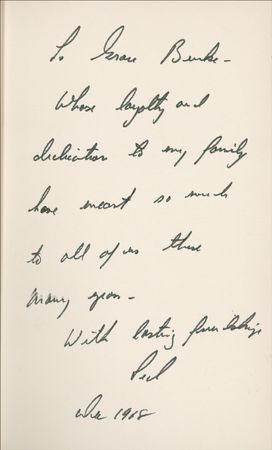 To Grace Burke -
Whose loyalty and
dedication to my family
have meant so much
to all of us these
many years -
With lasting friendship
1968